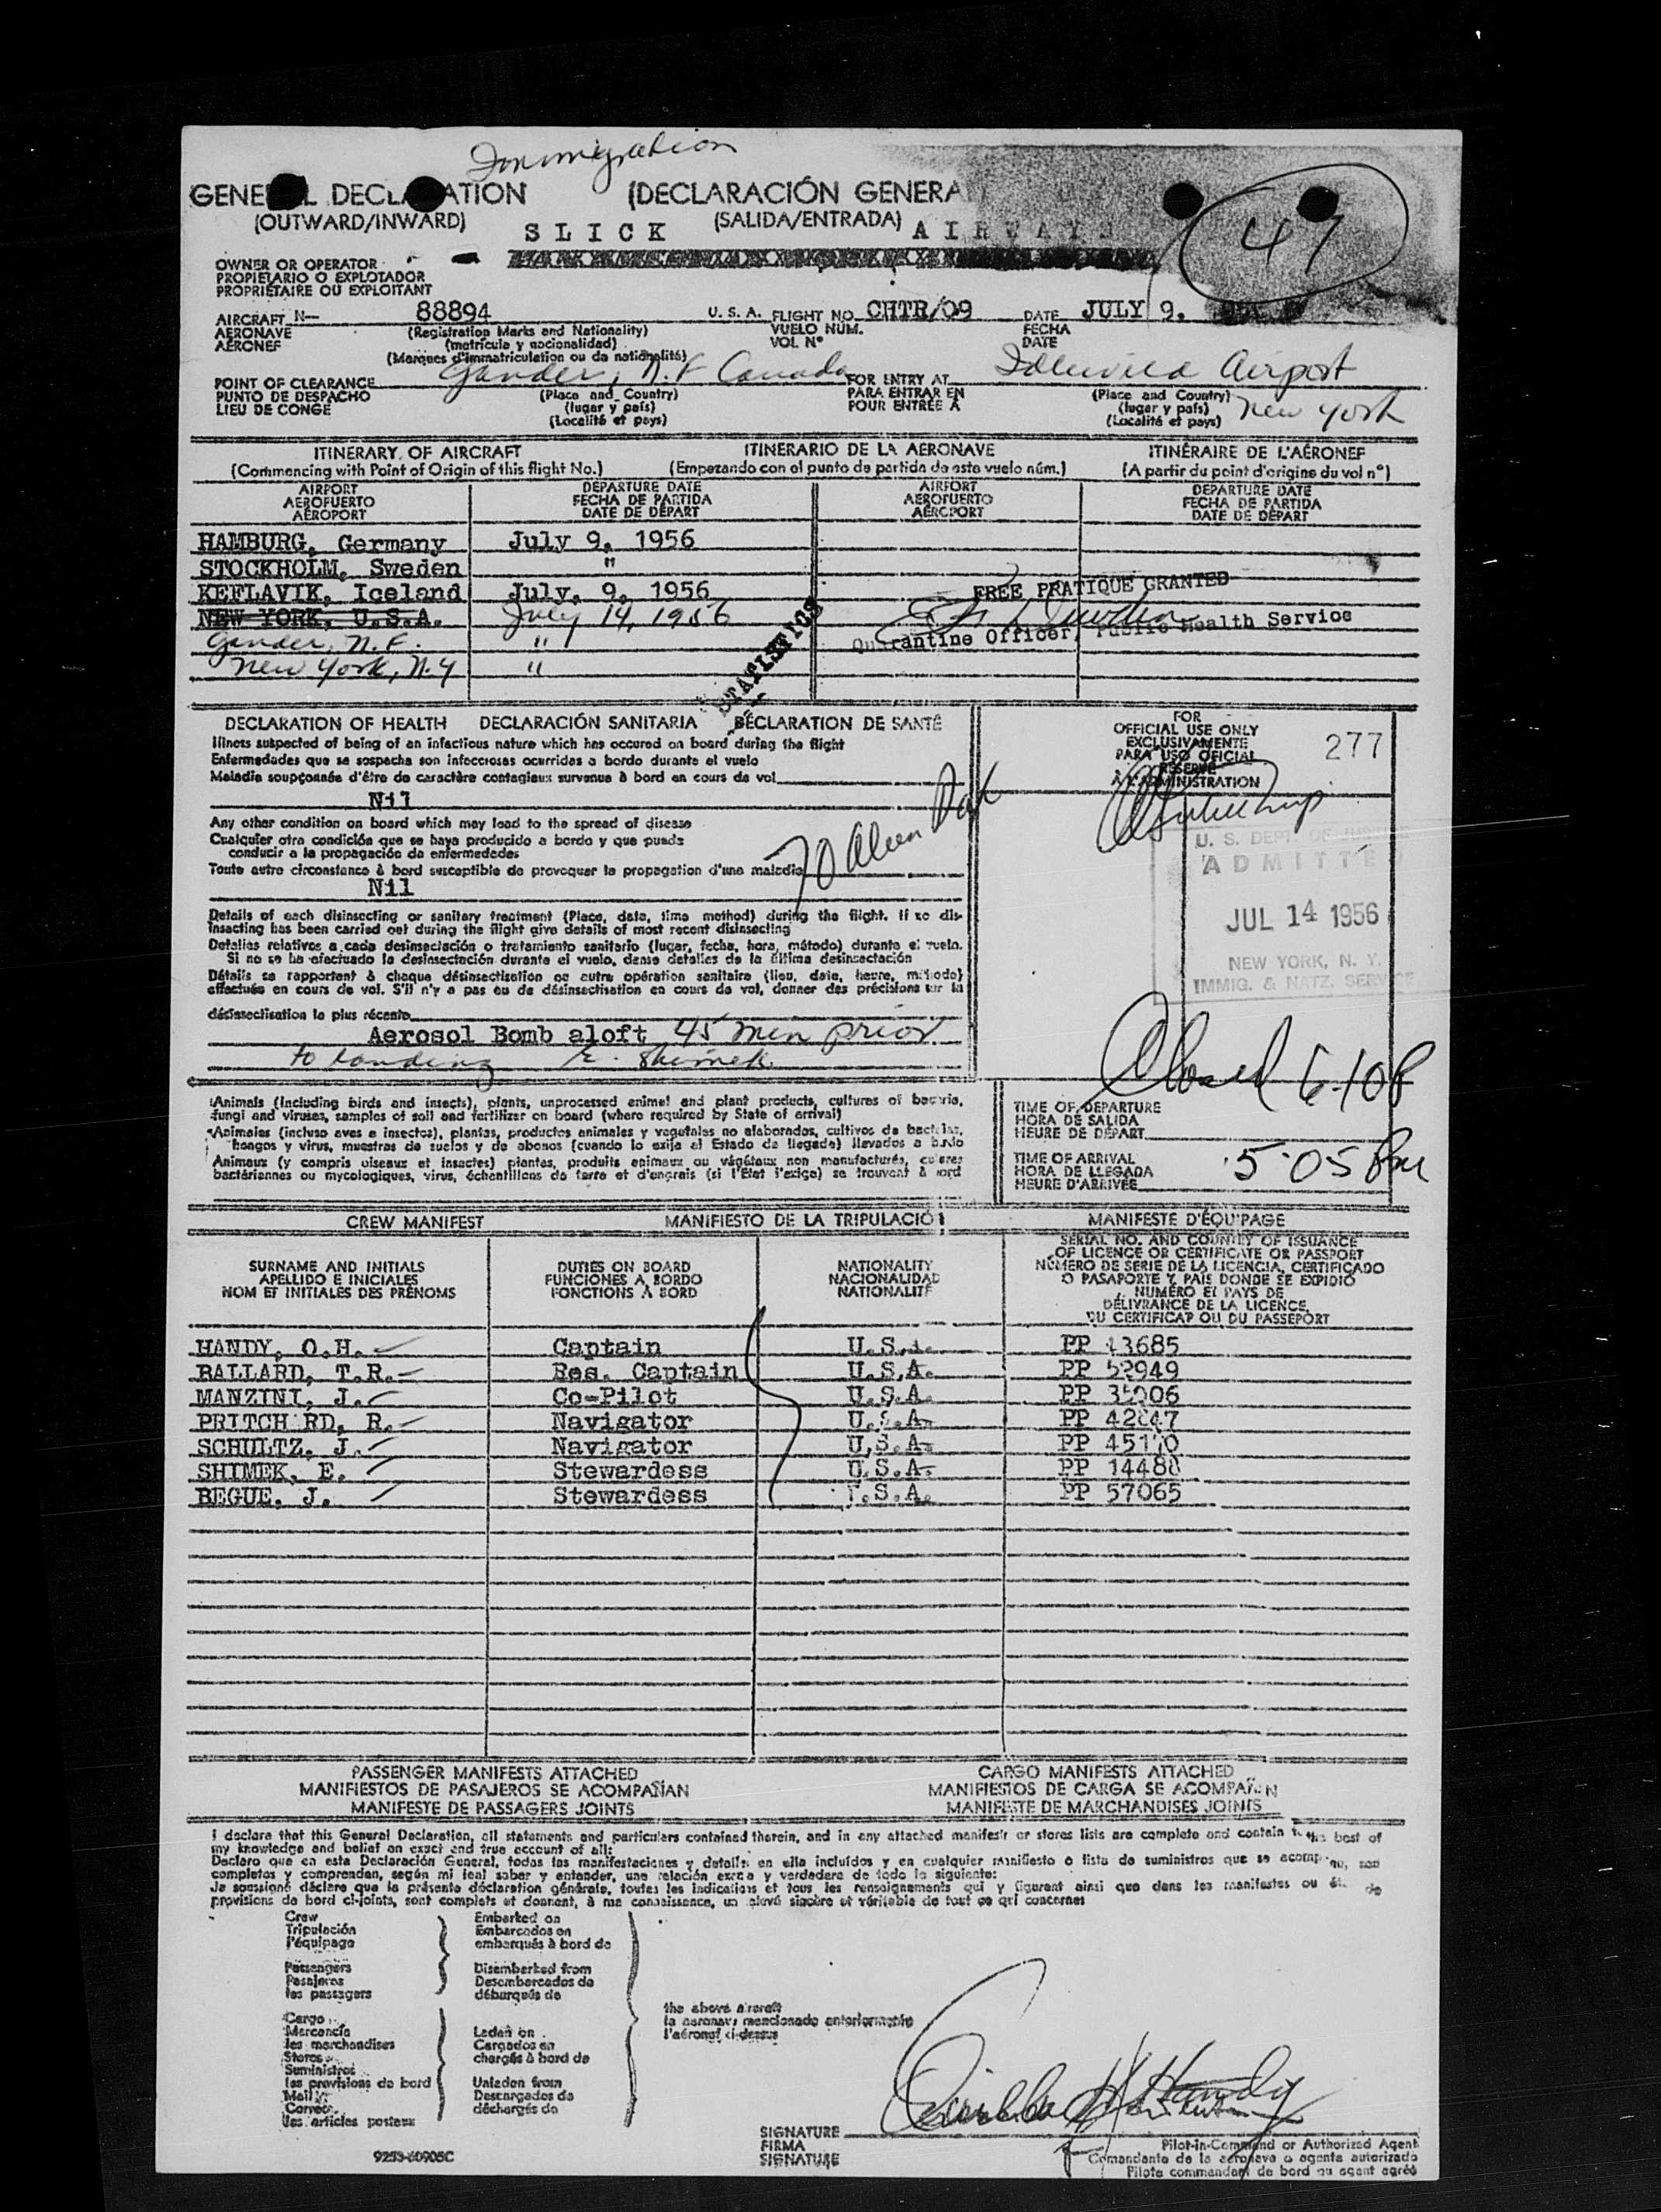 Immigration
GENERAL DECLARATION (DECLARACIÓN GENERA
(OUTWARD/INWARD) (SALIDA/ENTRADA)
SLICK AIRWAYS
47
OWNER OR OPERATOR
PROPIETARIO O EXPLOTADOR
PROPRIÉTAIRE OU EXPLOITANT
AIRCRAFT N— 88894 U. S. A. FLIGHT NO. CHTR/09 DATE JULY 9.
AERONAVE (Registration Marks and Nationality) VUELO NÚM. FECHA
AÉRONEF (matrícula y nacionalidad) VOL N° DATE
(Marques d'immatriculation ou de nationalité)
POINT OF CLEARANCE Gander, N.F Canada FOR ENTRY AT Idlewild Airport
PUNTO DE DESPACHO (Place and Country) PARA ENTRAR EN (Place and Country) New York
LIEU DE CONGÉ (lugar y país) POUR ENTRÉE À (lugar y país)
(Localité et pays) (Localité et pays)
ITINERARY OF AIRCRAFT ITINERARIO DE LA AERONAVE ITINÉRAIRE DE L'AÉRONEF
(Commencing with Point of Origin of this flight No.) (Empezando con el punto de partida de este vuelo núm.) (A partir du point d'origine du vol n°)
AIRPORT DEPARTURE DATE AIRPORT DEPARTURE DATE
AEROPUERTO FECHA DE PARTIDA AEROPUERTO FECHA DE PARTIDA
AÉROPORT DATE DE DÉPART AÉROPORT DATE DE DÉPART
HAMBURG, Germany July 9, 1956
STOCKHOLM, Sweden "
KEFLAVIK, Iceland July, 9, 1956 FREE PRATIQUE GRANTED
NEW YORK, U.S.A. July 14, 1956
Gander, N.F. " Quarantine Officer, Public Health Service
New York, N.Y "
STATISTICS
DECLARATION OF HEALTH DECLARACIÓN SANITARIA DÉCLARATION DE SANTÉ
Illness suspected of being of an infectious nature which has occured on board during the flight
Enfermedades que se sospecha son infecciosas ocurridas a bordo durante el vuelo
Maladie soupçonnée d'être de caractère contagieux survenue à bord en cours de vol
Nil
Any other condition on board which may lead to the spread of disease
Cualquier otra condición que se haya producido a bordo y que pueda
conducir a la propagación de enfermedades
Toute autre circonstance à bord susceptible de provoquer la propagation d'une maladie
Nil
70 Alien Pax
Details of each disinsecting or sanitary treatment (Place, date, time method) during the flight. If no dis-
insecting has been carried out during the flight give details of most recent disinsecting
Detalles relativos a cada desinsectación o tratamiento sanitario (lugar, fecha, hora, método) durante el vuelo.
Si no se ha efectuado la desinsectación durante el vuelo, dense detalles de la última desinsectación
Détails se rapportant à chaque désinsectisation ou autre opération sanitaire (lieu, date, heure, méthode)
effectuée en cours de vol. S'il n'y a pas eu de désinsectisation en cours de vol, donner des précisions sur la
désinsectisation la plus récente
Aerosol Bomb aloft 45 min prior
to landing E. Shimek
FOR
OFFICIAL USE ONLY
EXCLUSIVAMENTE
PARA USO OFICIAL
RÉSERVÉ
À L'ADMINISTRATION
277
U. S. DEPT. OF JUSTICE
ADMITTED
JUL 14 1956
NEW YORK, N. Y.
IMMIG. & NATZ. SERVICE
Closed 6-10P
Animals (Including birds and insects), plants, unprocessed animal and plant products, cultures of bacteria,
fungi and viruses, samples of soil and fertilizer on board (where required by State of arrival)
Animales (incluso aves e insectos), plantas, productos animales y vegetales no elaborados, cultivos de bacterias,
hongos y virus, muestras de suelos y de abonos (cuando lo exija el Estado de llegada) llevados a bordo
Animaux (y compris oiseaux et insectes) plantes, produits animaux ou végétaux non manufacturés, cultures
bactériennes ou mycologiques, virus, échantillons de terre et d'engrais (si l'Etat l'exige) se trouvant à bord
TIME OF DEPARTURE
HORA DE SALIDA
HEURE DE DÉPART
TIME OF ARRIVAL
HORA DE LLEGADA 5:05 Pm
HEURE D'ARRIVÉE
CREW MANIFEST MANIFIESTO DE LA TRIPULACIÓ MANIFESTE D'ÉQUIPAGE
SURNAME AND INITIALS DUTIES ON BOARD NATIONALITY
APELLIDO E INICIALES FUNCIONES A BORDO NACIONALIDAD
NOM ET INITIALES DES PRÉNOMS FONCTIONS À BORD NATIONALITÉ
SERIAL NO. AND COUNTRY OF ISSUANCE
OF LICENCE OR CERTIFICATE OR PASSPORT
NÚMERO DE SERIE DE LA LICENCIA, CERTIFICADO
O PASAPORTE Y PAÍS DONDE SE EXPIDIÓ
NUMÉRO ET PAYS DE
DÉLIVRANCE DE LA LICENCE,
DU CERTIFICAT OU DU PASSEPORT
HANDY, O.H. Captain U.S.A. PP 13685
BALLARD, T.R. Res. Captain U.S.A. PP 52949
MANZINI, J. Co-Pilot U.S.A. PP 35006
PRITCHARD, R. Navigator U.S.A. PP
SCHULTZ, J. Navigator U.S.A. PP
SHIMEK, E. Stewardess U.S.A. PP 14480
BEGUE, J. Stewardess U.S.A. PP 57065
PASSENGER MANIFESTS ATTACHED CARGO MANIFESTS ATTACHED
MANIFIESTOS DE PASAJEROS SE ACOMPAÑAN MANIFIESTOS DE CARGA SE ACOMPAÑAN
MANIFESTE DE PASSAGERS JOINTS MANIFESTE DE MARCHANDISES JOINTS
I declare that this General Declaration, all statements and particulars contained therein, and in any attached manifest or stores lists are complete and contain to the best of
my knowledge and belief an exact and true account of all:
Declaro que en esta Declaración General, todas las manifestaciones y detalles en ella incluídos y en cualquier manifiesto o lista de suministros que se acompane, son
completos y comprenden, según mi leal saber y entender, una relación exacta y verdadera de todo lo siguiente:
Je soussigné déclare que la présente déclaration générale, toutes les indications et tous les renseignements qui y figurent ainsi que dans les manifestes ou de
provisions de bord ci-joints, sont complets et donnent, à ma connaissance, un relevé sincère et véritable de tout ce qui concernes
Crew Embarked on
Tripulación Embarcados en
l'équipage embarqués à bord de
Passengers Disembarked from
Pasajeros Desembarcados de
les passagers débarqués de
the above aircraft
la aeronave mencionado anteriormente
l'aéronef ci-dessus
Cargo
Mercancía Laden on
les marchandises Cargados en
Stores chargés à bord de
Suministros
les provisions de bord Unladen from
Mail Descargados de
Correo déchargés de
les articles postaux
SIGNATURE
FIRMA Pilot-in-Command or Authorized Agent
SIGNATURE Comandante de la aeronave o agente autorizado
Pilote commandant de bord ou agent agréé
9253-60905C